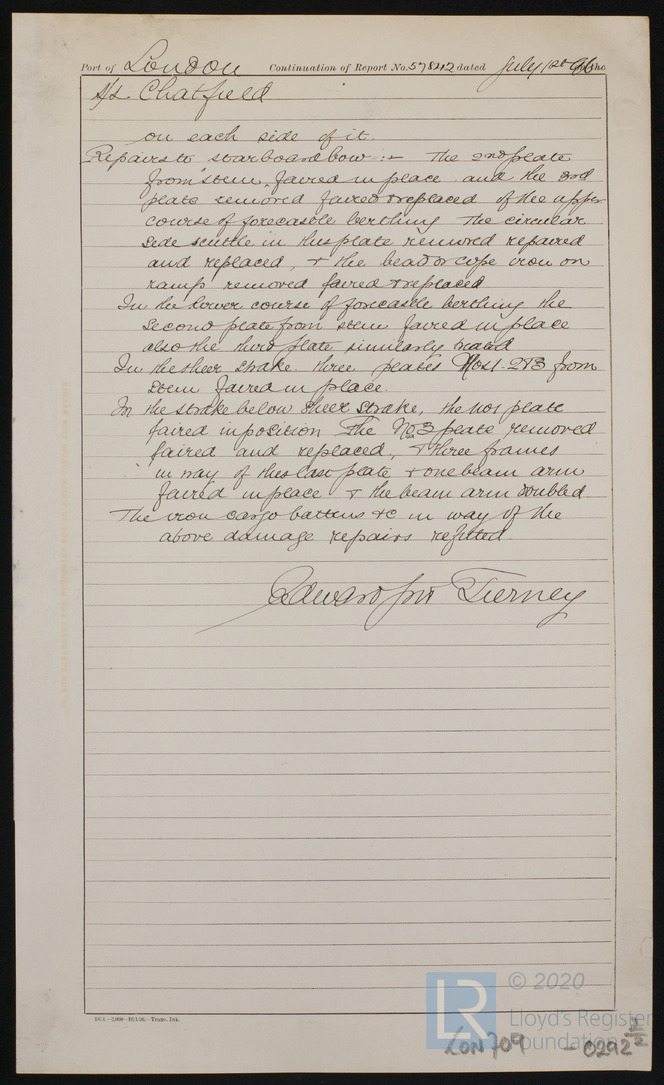 Port of London Continuation of Report No. 57842 dated July 1st 96 on the
S/S Chatfield
on each side of it.
Repairs to starboard bow :- The 2nd plate
from stem, faired in place and the 3rd
plate removed faired & replaced of the upper
course of forecastle berthing The circular
side scuttle in this plate removed repaired
and replaced, & the bead or cope iron on
ramp removed faired & replaced
In the lower course of forecastle berthing the
Second plate from stem faired in place
also the third plate similarly treated
In the sheer strake three plates Nos 1. 2 & 3 from
stem faired in place.
In the strake below sheer strake, the No1 plate
faired in position The No 3 plate removed
faired and replaced, & three frames
in way of this last plate & one beam arm
faired in place & the beam arm doubled
The iron cargo battens &c in way of the
above damage repairs refitted.
Edward Tierney
© 2020
LR
Lloyd's Register
Foundation
LON709 - 0292